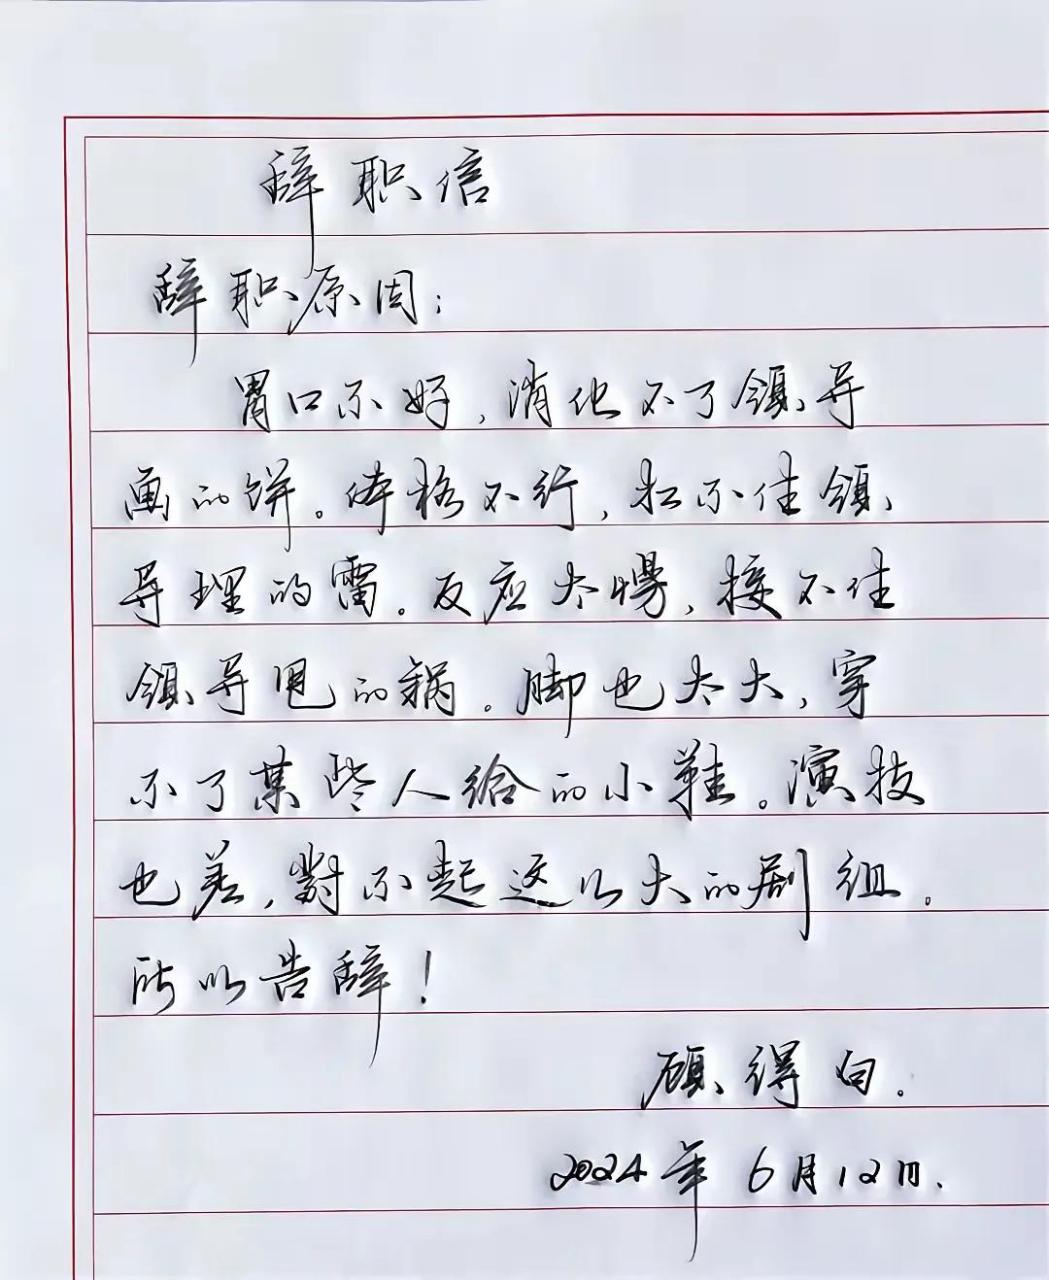 辞职信
辞职原因：
胃口不好，消化不了领导
画的饼。体格不行，扛不住领
导埋的雷。反应太慢，接不住
领导甩的锅。脚也太大，穿
不了某些人给的小鞋。演技
也差，對不起这么大的剧组。
所以告辞！
顾得白.
2024年6月12日.